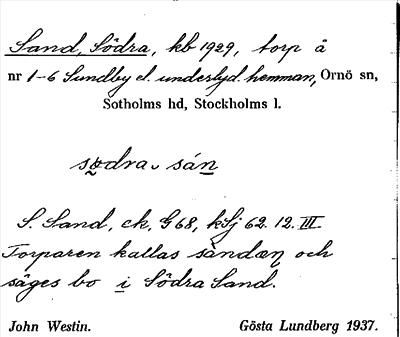 Sand, Södra, kb 1929, torp å
nr 1-6 Sundby el. underlyd. hemman, Ornö sn,
Sotholms hd, Stockholms l.
sọdra⌣ sán̲
S. Sand, ck, G 68, kSj 62. 12. III
Torparen kallas sàndæn och
säges bo i̲ Södra Sand.
John Westin. Gösta Lundberg 1937.